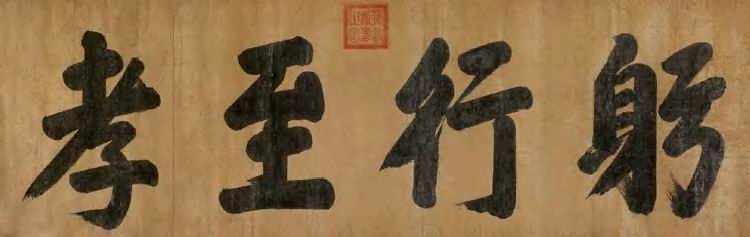 躬行至孝